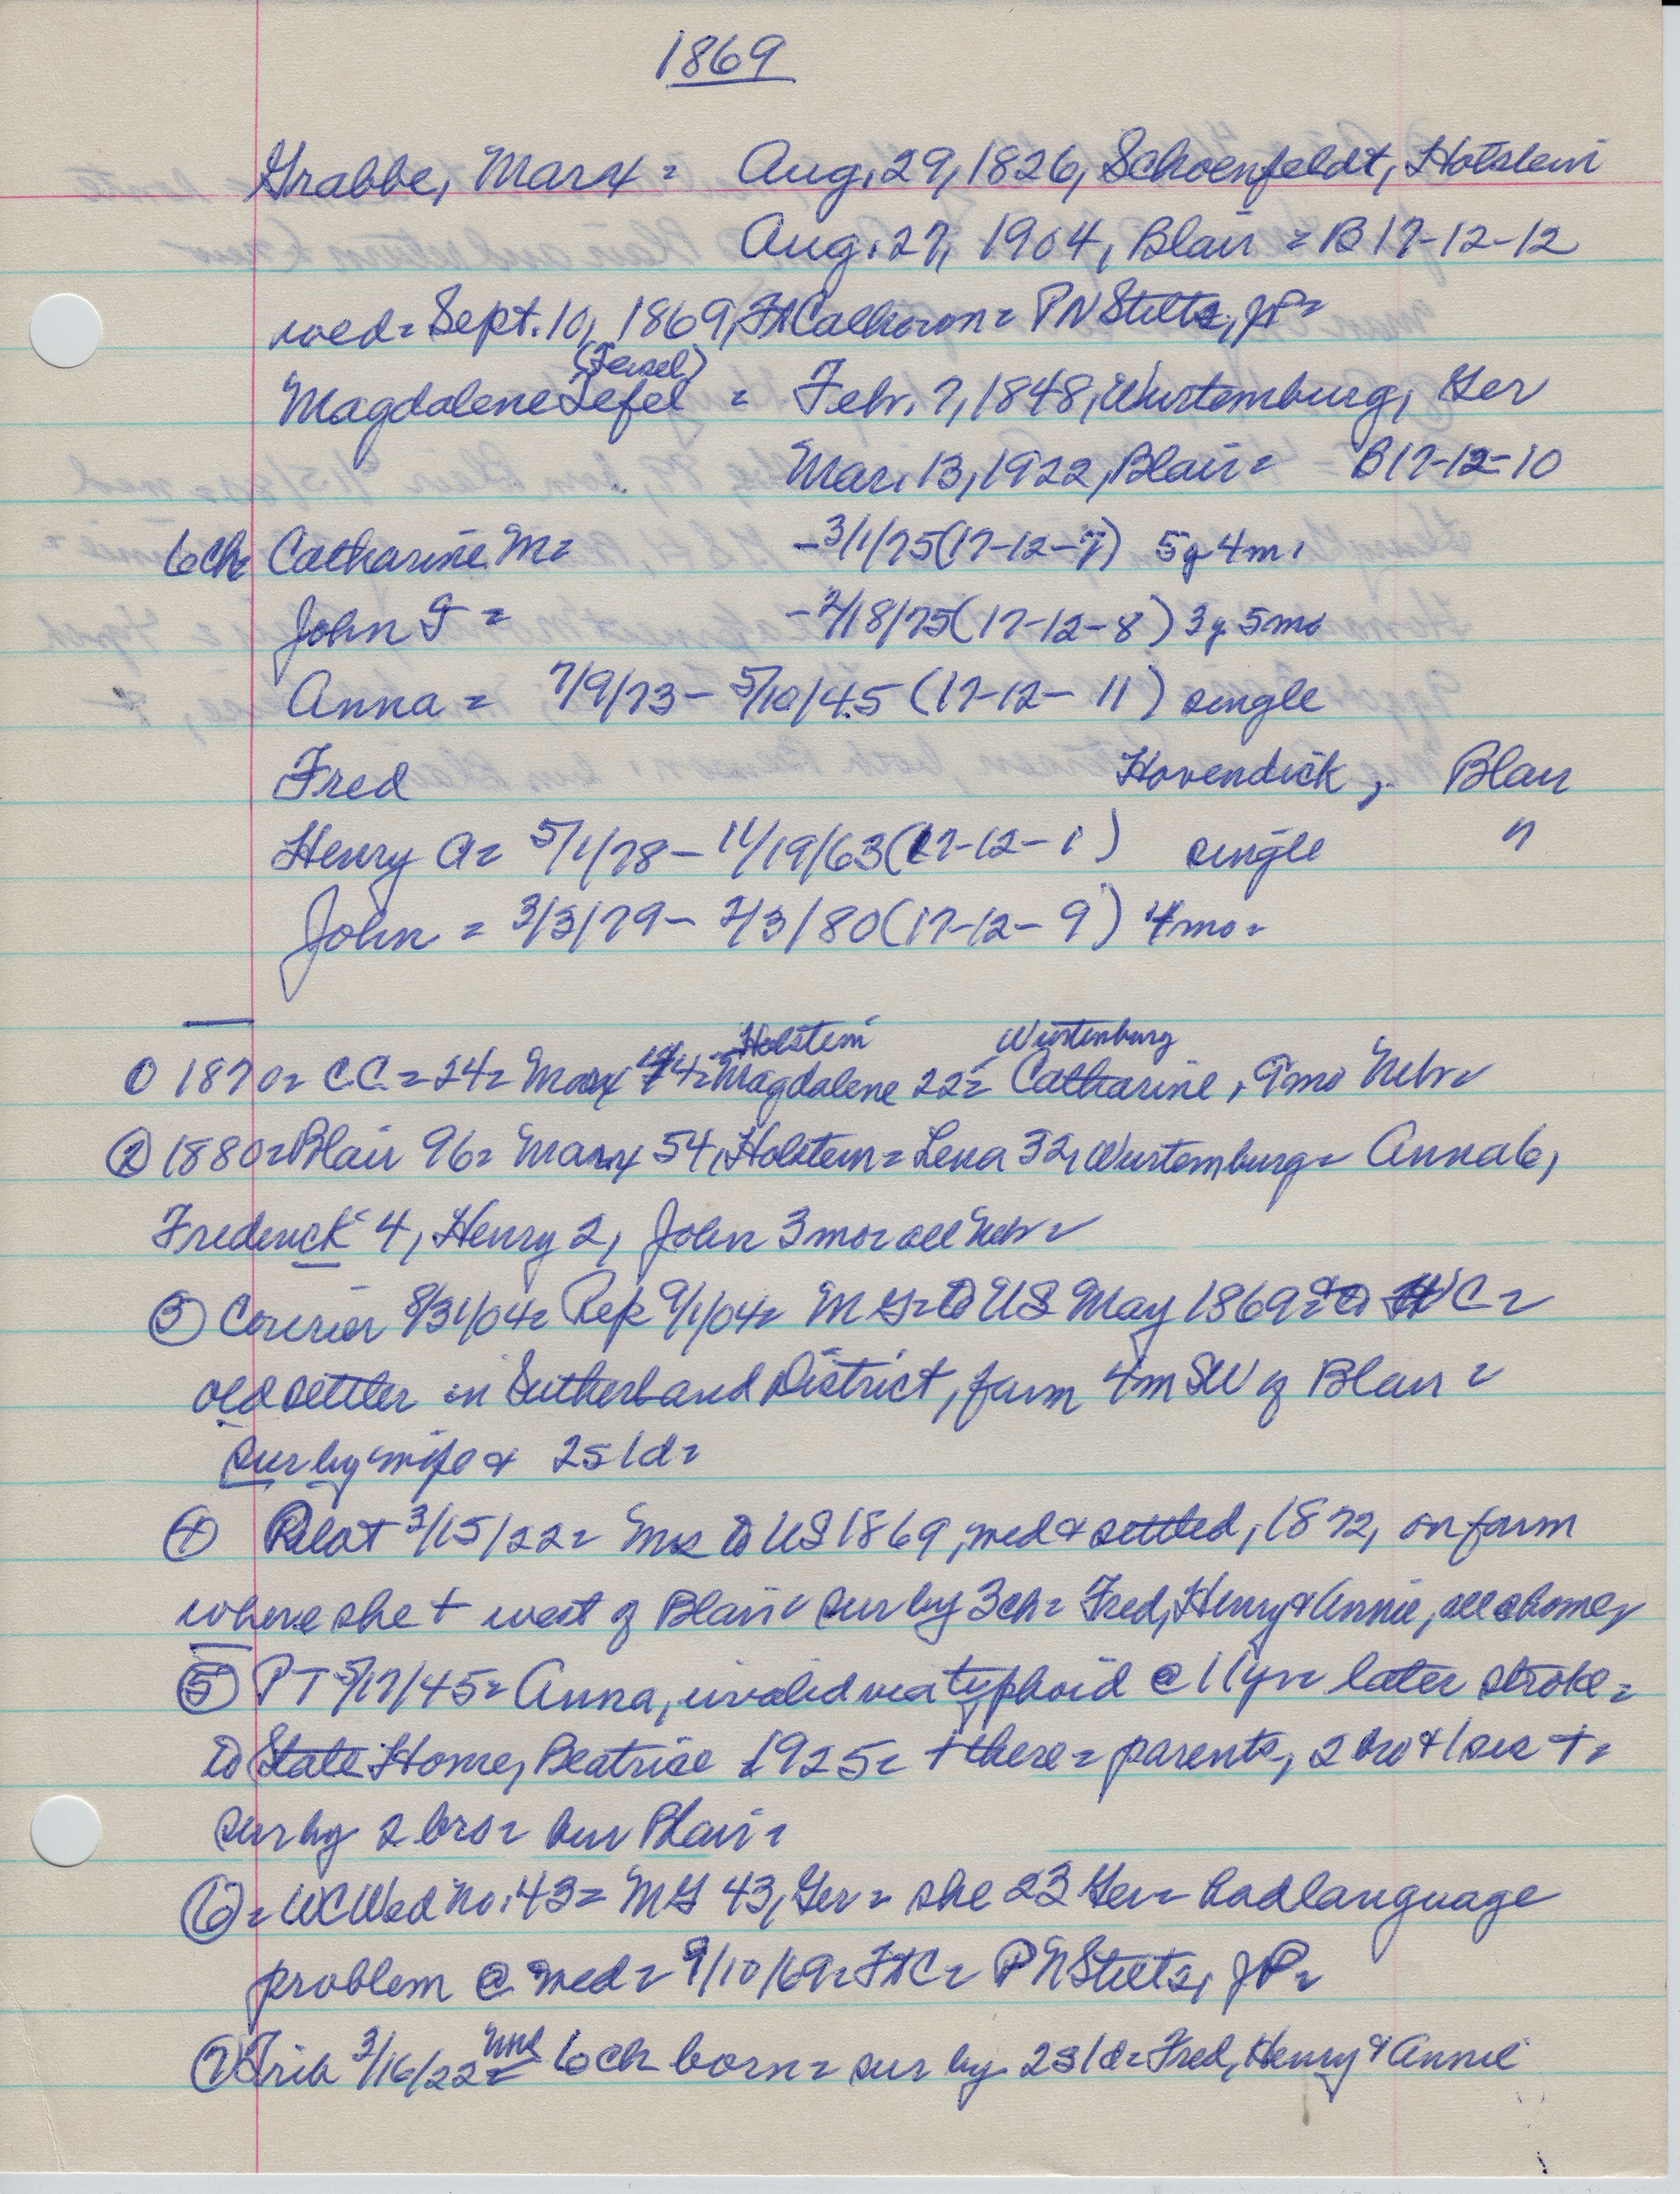 1869
Grabbe, Marx = Aug. 29, 1826, Schoenfeldt, Holstein
Aug. 27, 1904, Blair = B 17-12-12
wed = Sept. 10, 1869, Ft Calhoun = PN Stilts, JP =
(Feisel)
Magdalene Lefel = Febr. 7, 1848, Wurtemburg, Ger
Mar. 13, 1922, Blair = B 17-12-10
6 ch = Catharine M = - 3/1/75 (17-12-7) 5y 4m
John G = - 2/18/75 (17-12-8) 3y 5mo
Anna = 7/9/73 - 5/10/45 (17-12-11) single
Fred Hovendick, Blair
Henry A = 5/1/78 - 11/19/63 (17-12-1) single "
John = 3/3/79 - 2/3/80 (17-12-9) 4mo =
Holstein Wurtenburg
① 1870 = C.C. = 24 = Marx 44 = Magdalene 22 = Catharine, 9mo Nebr =
② 1880 = Blair 96 = Marx 54, Holstein = Lena 32, Wurtemburg = Anna 6,
Frederick 4, Henry 2, John 3mo = all Nebr =
③ Courier 8/31/04 = Rep 9/1/04 = MG = to US May 1869 = to WC =
old settler in Sutherland District, farm 4m SW of Blair =
sur by wife & 2s 1d =
④ Pilot 3/15/22 = Mrs to US 1869, wed & settled, 1872, on farm
where she + west of Blair = sur by 3ch = Fred, Henry & Annie, all @ home =
⑤ PT 5/17/45 = Anna, invalid via typhoid @ 11yr = later stroke =
to State Home, Beatrice 1925 = + there = parents, 2 bro & 1 sis + =
sur by 2 bro = bur Blair =
⑥ = WC Wed No. 43 = MG 43, Ger = she 23 Ger = had language
problem @ wed = 9/10/69 = Ft C = PN Stilts, JP =
⑦ Trib 3/16/22 = Mrs = 6 ch born = sur by 2s 1d = Fred, Henry & Annie